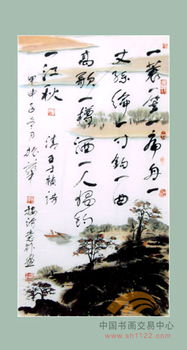 一蓑一笠一扁舟一
丈丝纶一寸钩一曲
高歌一樽酒一人独钓
一江秋 清王士禎诗
甲申
中国书画交易中心
www.sh1122.com